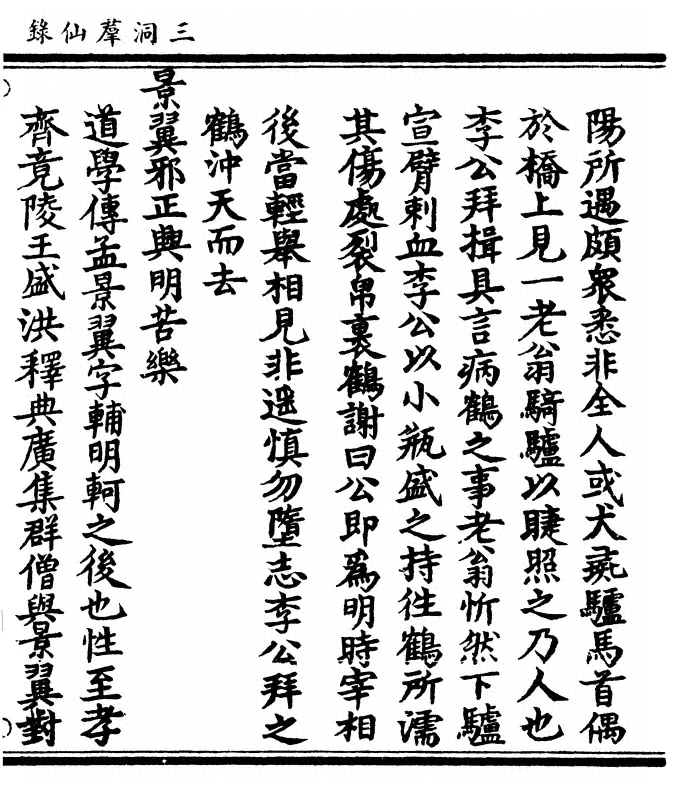 三洞羣仙錄
陽所遇頗衆悉非全人或犬彘驢馬首偶
於橋上見一老翁騎驢以睫照之乃人也
李公拜揖具言病鶴之事老翁忻然下驢
宣臂刺血李公以小瓶盛之持往鶴所濡
其傷處裂帛裹鶴謝曰公即爲明時宰相
後當輕舉相見非遥慎勿墮志李公拜之
鶴沖天而去
景翼邪正興明苦樂
道學傳孟景翼字輔明軻之後也性至孝
齊竟陵王盛洪釋典廣集群僧與景翼對